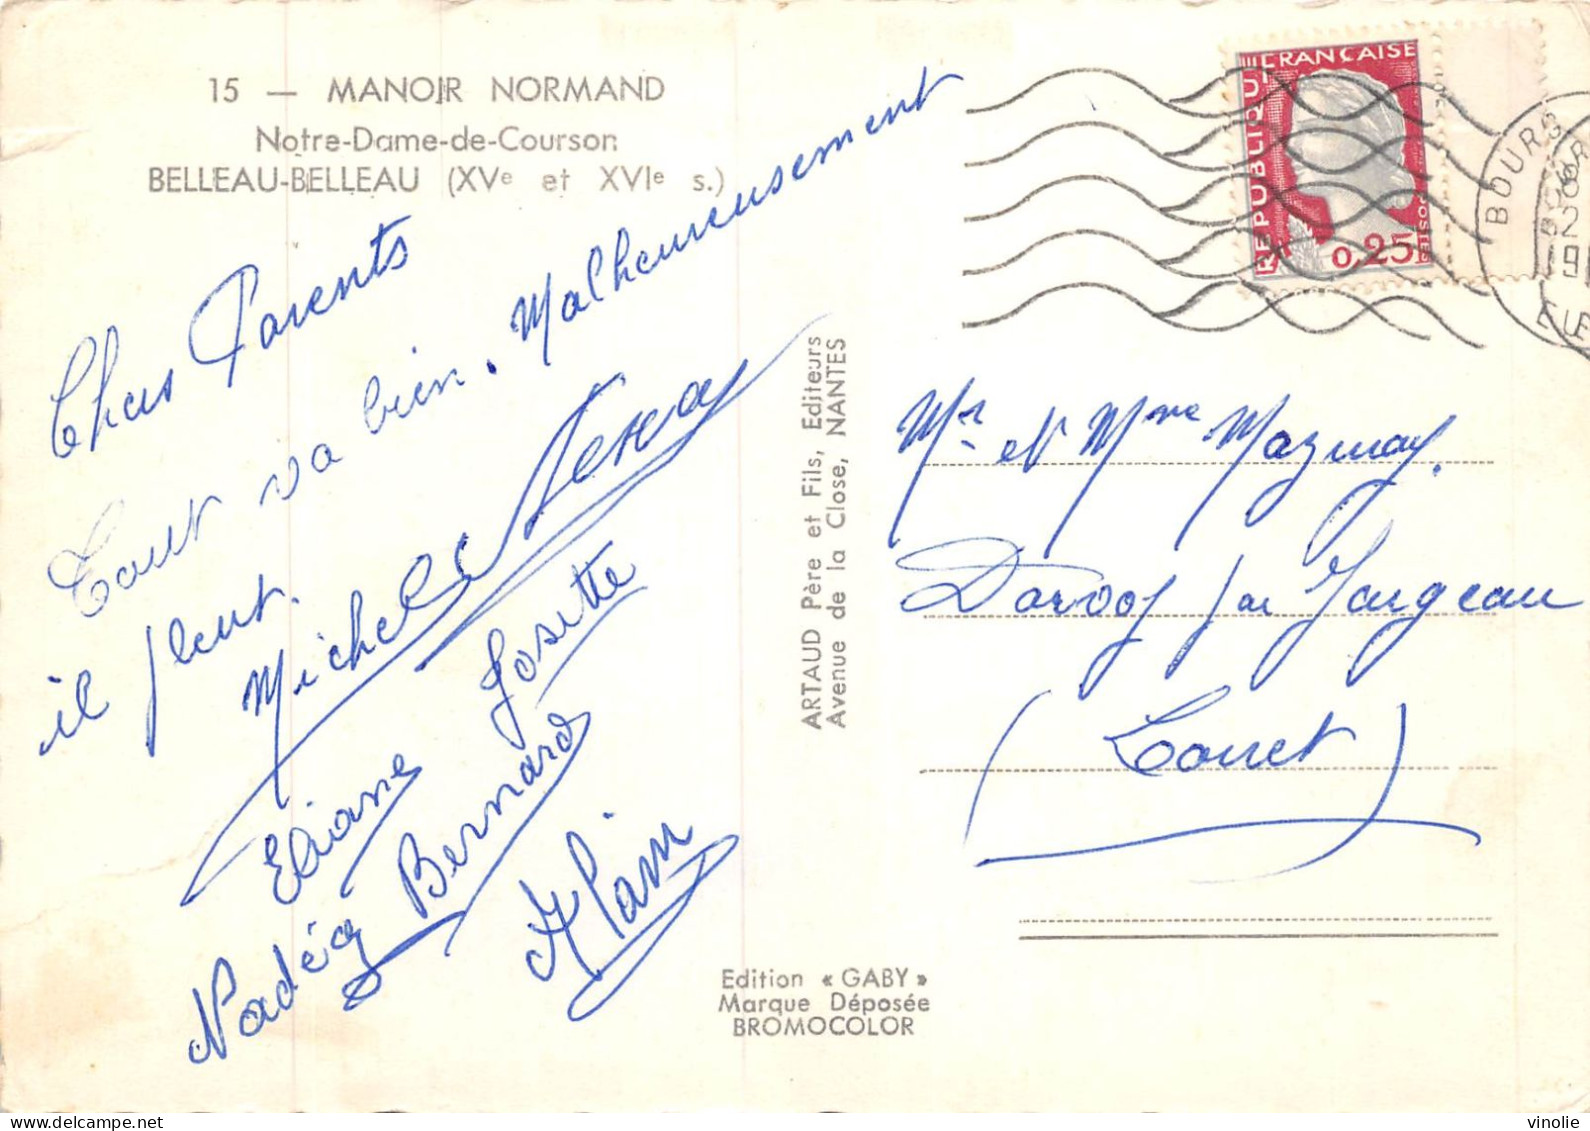 15 — MANOIR NORMAND
Notre-Dame-de-Courson
BELLEAU-BELLEAU (XVe et XVIe s.)
Chers Parents
Tout va bien. Malheureusement
il pleut.
Michel
Josette
Eliane
Bernard
Alain
ARTAUD Père et Fils, Editeurs
Avenue de la Close, NANTES
Edition « GABY »
Marque Déposée
BROMOCOLOR
RÉPUBLIQUE FRANÇAISE
POSTES
0,25
BOURG
19
EURE
Mr et Mme Mazuray.
Darvoy par Jargeau
(Loiret)
vinolie